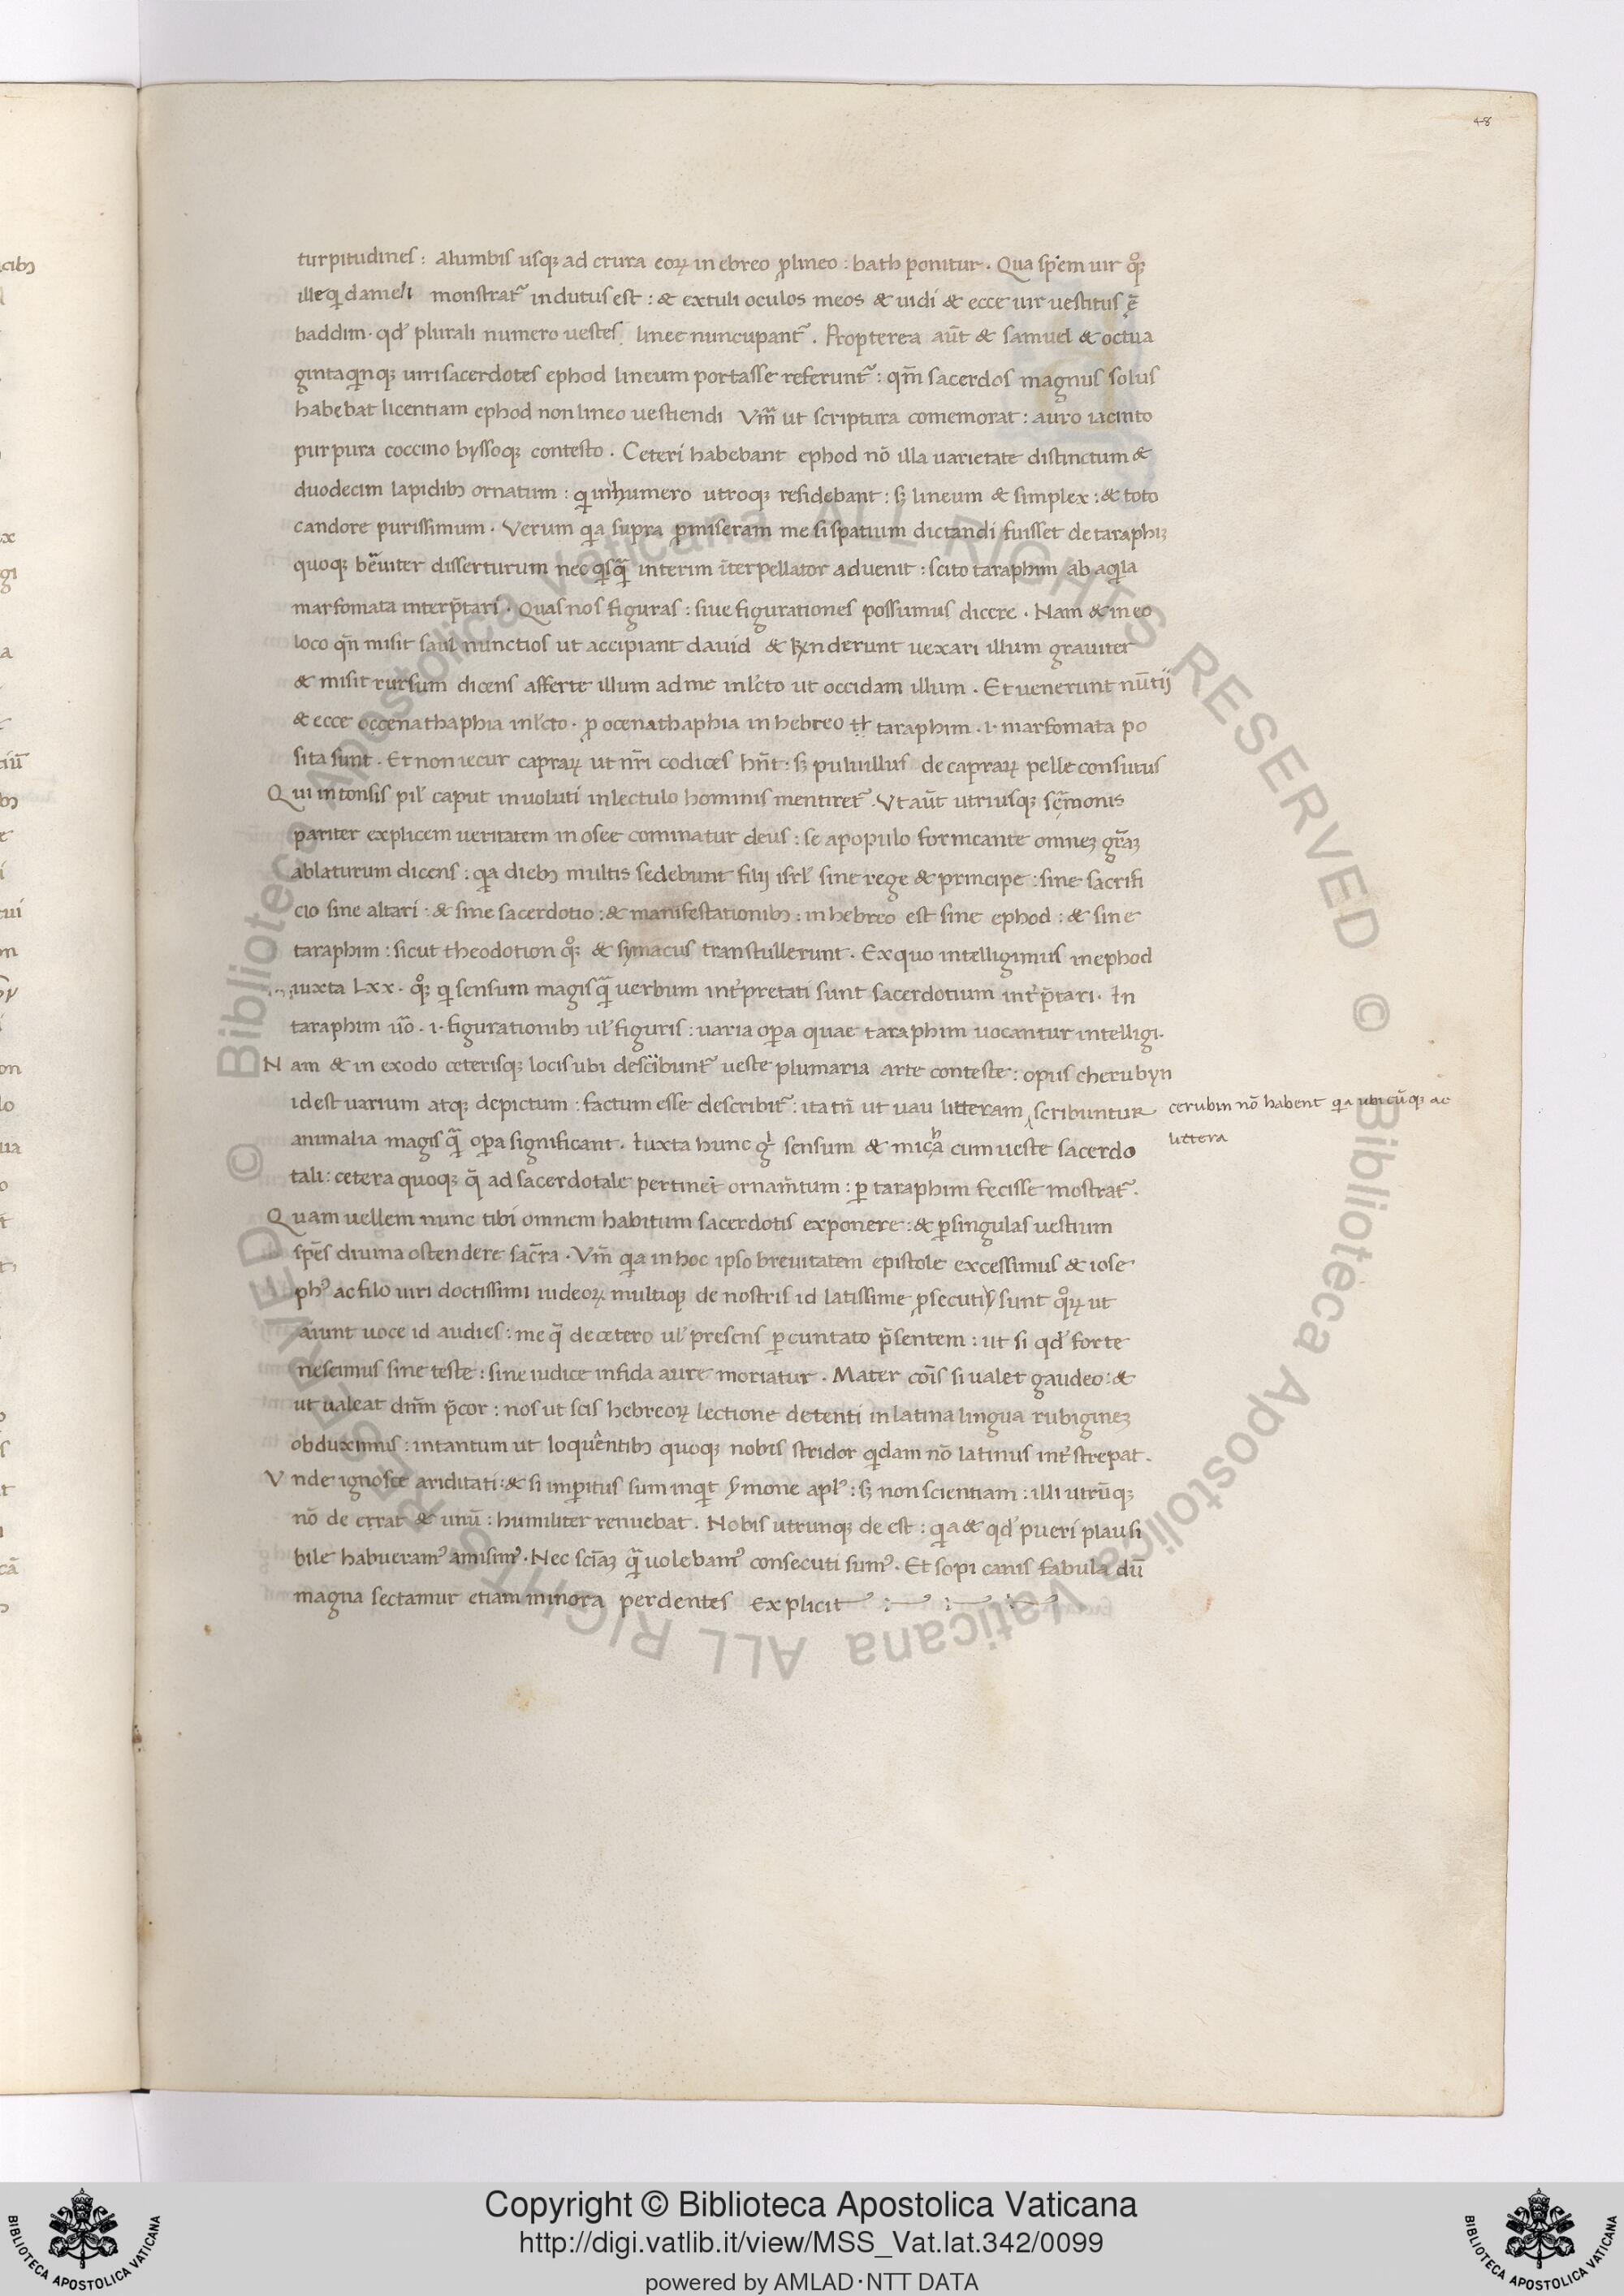 48
turpitudines : alumbis usqꝫ ad crura eoꝝ in ebreo ꝓlineo : bath ponitur . Qua spēm uir qͦꝫ
ille qi danieli monstratͬ indutus est : & extuli oculos meos & uidi & ecce uir uestitus ē
baddim . qđ plurali numero uestes linee nuncupantͬ . Propterea aūt & samuel & octua
gintaqinqꝫ uiri sacerdotes ephod lineum portasse referuntͬ : qm̄ sacerdos magnus solus
habebat licentiam ephod non lineo uestiendi Vm̄ ut scriptura comemorat : auro iacinto
purpura coccino byssoqꝫ contesto . Ceteri habebant ephod nō illa uarietate distinctum &
duodecim lapidibꝫ ornatum : qi in humero utroqꝫ residebant : sꝫ lineum & simplex : & toto
candore purissimum . Verum qia supra ꝓmiseram me si spatium dictandi fuisset de taraphiꝫ
quoqꝫ breuiter disserturum nec qisqͣ interim īterpellator aduenit : scito taraphim ab aqila
marfomata interp̄tari . Quas nos figuras : siue figurationes possumus dicere . Nam & in eo
loco qn̄ misit saul nunctios ut accipiant dauid & rͤnderunt uexari illum grauiter
& misit rursum dicens afferte illum ad me in lc̄to ut occidam illum . Et uenerunt nūtij
& ecce occenathaphia in lc̄to . ꝓ ocenathaphia in hebreo taraphim . i . marfomata po
sita sunt . Et non iecur capraꝝ ut nr̄i codices hn̄t : sꝫ puluillus de capraꝝ pelle consutus
Qui intonsis pil' caput inuoluti in lectulo hominis mentiretͬ . Vt aūt utriusqꝫ sermonis
pariter explicem ueritatem in osee cominatur deus : se apopulo fornicante omneꝫ grāꝫ
ablaturum dicens : qia diebꝫ multis sedebunt filij isrl' sine rege & principe : sine sacrifi
cio sine altari : & sine sacerdotio : & manifestationibꝫ : in hebreo est sine ephod : & sine
taraphim : sicut theodotion qͦꝫ & symacus transtullerunt . Ex quo intelligimus in ephod
iuxta Lxx . qͦꝫ qi sensum magis qͣ uerbum intͥpretati sunt sacerdotium intͥp̄tari . In
taraphim uͦ . i . figurationibꝫ ul' figuris : uaria oꝑa quae taraphim uocantur intelligi .
Nam & in exodo ceterisqꝫ locis ubi descͥbuntͬ ueste plumaria arte conteste : opus cherubyn
id est uarium atqꝫ depictum : factum esse describitͬ : ita tn̄ ut uau litteram scribuntur
cerubin nō habent qia ubicūqꝫ ac
littera
animalia magis qͣ oꝑa significant . Iuxta hunc gͥ sensum & micha cum ueste sacerdo
tali : cetera quoqꝫ q̄ ad sacerdotale pertinet ornam̄tum : ꝑ taraphim fecisse mostratͬ .
Quam uellem nunc tibi omnem habitum sacerdotis exponere : & ꝑ singulas uestium
spēs diuina ostendere sacr̄a . Vm̄ qia in hoc ipso breuitatem epistole excessimus & iose
phꝰ ac filo uiri doctissimi iudeoꝝ multiqꝫ de nostris id latissime ꝓsecuti sunt qͦꝝ ut
aiunt uoce id audies : me q̄ de cetero ul' presens ꝑcuntato p̄sentem : ut si qđ forte
nescimus sine teste : sine iudice in fida aure moriatur . Mater cōis si ualet gaudeo : &
ut ualeat dn̄m p̄cor : nos ut scis hebreoꝝ lectione detenti in latina lingua rubigineꝫ
obduximus : intantum ut loquentibꝫ quoqꝫ nobis stridor qidam nō latinus intͥstrepat .
Vnde ignosce ariditati : & si imꝑitus sum inqit sermone apl'ꝰ : sꝫ non scientiam : illi utrūqꝫ
nō de errat & unū : humiliter renuebat . Nobis utrunqꝫ de est : qia & qđ pueri plausi
bile habueramꝰ amisimꝰ . Nec scīaꝫ qͣ uolebamꝰ consecuti sumꝰ . Et sopi canis fabula dū
magna sectamur etiam minora perdentes Explicit
© Biblioteca Apostolica Vaticana ALL RIGHTS RESERVED © Biblioteca Apostolica Vaticana ALL RIGHTS RESERVED
BIBLIOTECA APOSTOLICA VATICANA
Copyright © Biblioteca Apostolica Vaticana
http://digi.vatlib.it/view/MSS_Vat.lat.342/0099
powered by AMLAD·NTT DATA
BIBLIOTECA APOSTOLICA VATICANA